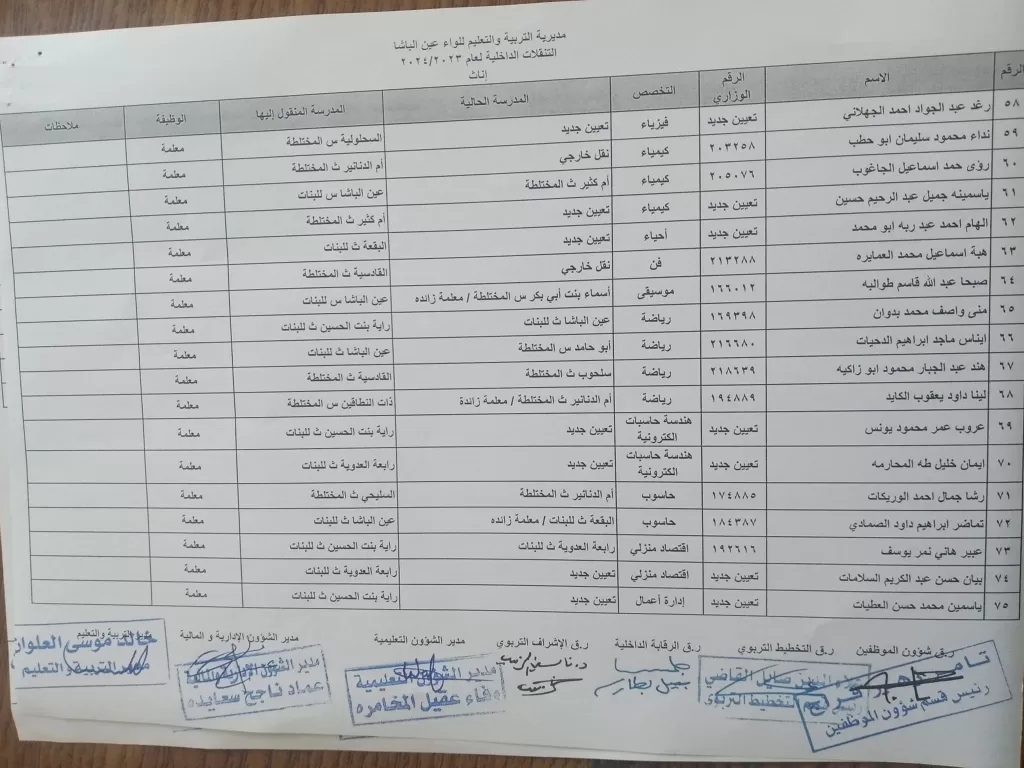 مديرية التربية والتعليم للواء عين الباشا
التنقلات الداخلية لعام ٢٠٢٤/٢٠٢٣
إناث
الرقم الاسم الرقم الوزاري التخصص المدرسة الحالية المدرسة المنقول إليها الوظيفة ملاحظات
٥٨ رغد عبد الجواد احمد الجهلاني تعيين جديد فيزياء تعيين جديد السحلولية س المختلطة معلمة
٥٩ نداء محمود سليمان ابو حطب ٢٠٣٢٥٨ كيمياء نقل خارجي أم الدنانير ث المختلطة معلمة
٦٠ رؤى حمد اسماعيل الجاغوب ٢٠٥٠٧٦ كيمياء أم كثير ث المختلطة عين الباشا س للبنات معلمة
٦١ ياسمينه جميل عبد الرحيم حسين تعيين جديد كيمياء تعيين جديد أم كثير ث المختلطة معلمة
٦٢ الهام احمد عبد ربه ابو محمد تعيين جديد أحياء تعيين جديد البقعة ث للبنات معلمة
٦٣ هبة اسماعيل محمد العمايره ٢١٣٢٨٨ فن نقل خارجي القادسية ث المختلطة معلمة
٦٤ صبحا عبد الله قاسم طوالبه ١٦٦٠١٢ موسيقى أسماء بنت أبي بكر س المختلطة / معلمة زائده عين الباشا س للبنات معلمة
٦٥ منى واصف محمد بدوان ١٦٩٣٩٨ رياضة عين الباشا ث للبنات راية بنت الحسين ث للبنات معلمة
٦٦ ايناس ماجد ابراهيم الدحيات ٢١٦٦٨٠ رياضة أبو حامد س المختلطة عين الباشا ث للبنات معلمة
٦٧ هند عبد الجبار محمود ابو زاكيه ٢١٨٦٣٩ رياضة سلحوب ث المختلطة القادسية ث المختلطة معلمة
٦٨ لينا داود يعقوب الكايد ١٩٤٨٨٩ رياضة أم الدنانير ث المختلطة / معلمة زائدة ذات النطاقين س المختلطة معلمة
٦٩ عروب عمر محمود يونس تعيين جديد هندسة حاسبات الكترونية تعيين جديد راية بنت الحسين ث للبنات معلمة
٧٠ ايمان خليل طه المحارمه تعيين جديد هندسة حاسبات الكترونية تعيين جديد رابعة العدوية ث للبنات معلمة
٧١ رشا جمال احمد الوريكات ١٧٤٨٨٥ حاسوب أم الدنانير ث المختلطة السليحي ث المختلطة معلمة
٧٢ تماضر ابراهيم داود الصمادي ١٨٤٣٨٧ حاسوب البقعة ث للبنات / معلمة زائده عين الباشا ث للبنات معلمة
٧٣ عبير هاني نمر يوسف ١٩٢٦١٦ اقتصاد منزلي رابعة العدوية ث للبنات راية بنت الحسين ث للبنات معلمة
٧٤ بيان حسن عبد الكريم السلامات تعيين جديد اقتصاد منزلي تعيين جديد رابعة العدوية ث للبنات معلمة
٧٥ ياسمين محمد حسن العطيات تعيين جديد إدارة أعمال تعيين جديد راية بنت الحسين ث للبنات معلمة
ر.ق شؤون الموظفين ر.ق التخطيط التربوي ر.ق الرقابة الداخلية ر.ق الإشراف التربوي مدير الشؤون التعليمية مدير الشؤون الإدارية و المالية مدير التربية والتعليم
رئيس قسم شؤون الموظفين
القاضي
التخطيط التربوي
مدير الشؤون التعليمية
وفاء عقيل المخامره
مدير الشؤون الإدارية والمالية
عماد ناجح سعايده
خالد موسى العلوان
مدير التربية و التعليم